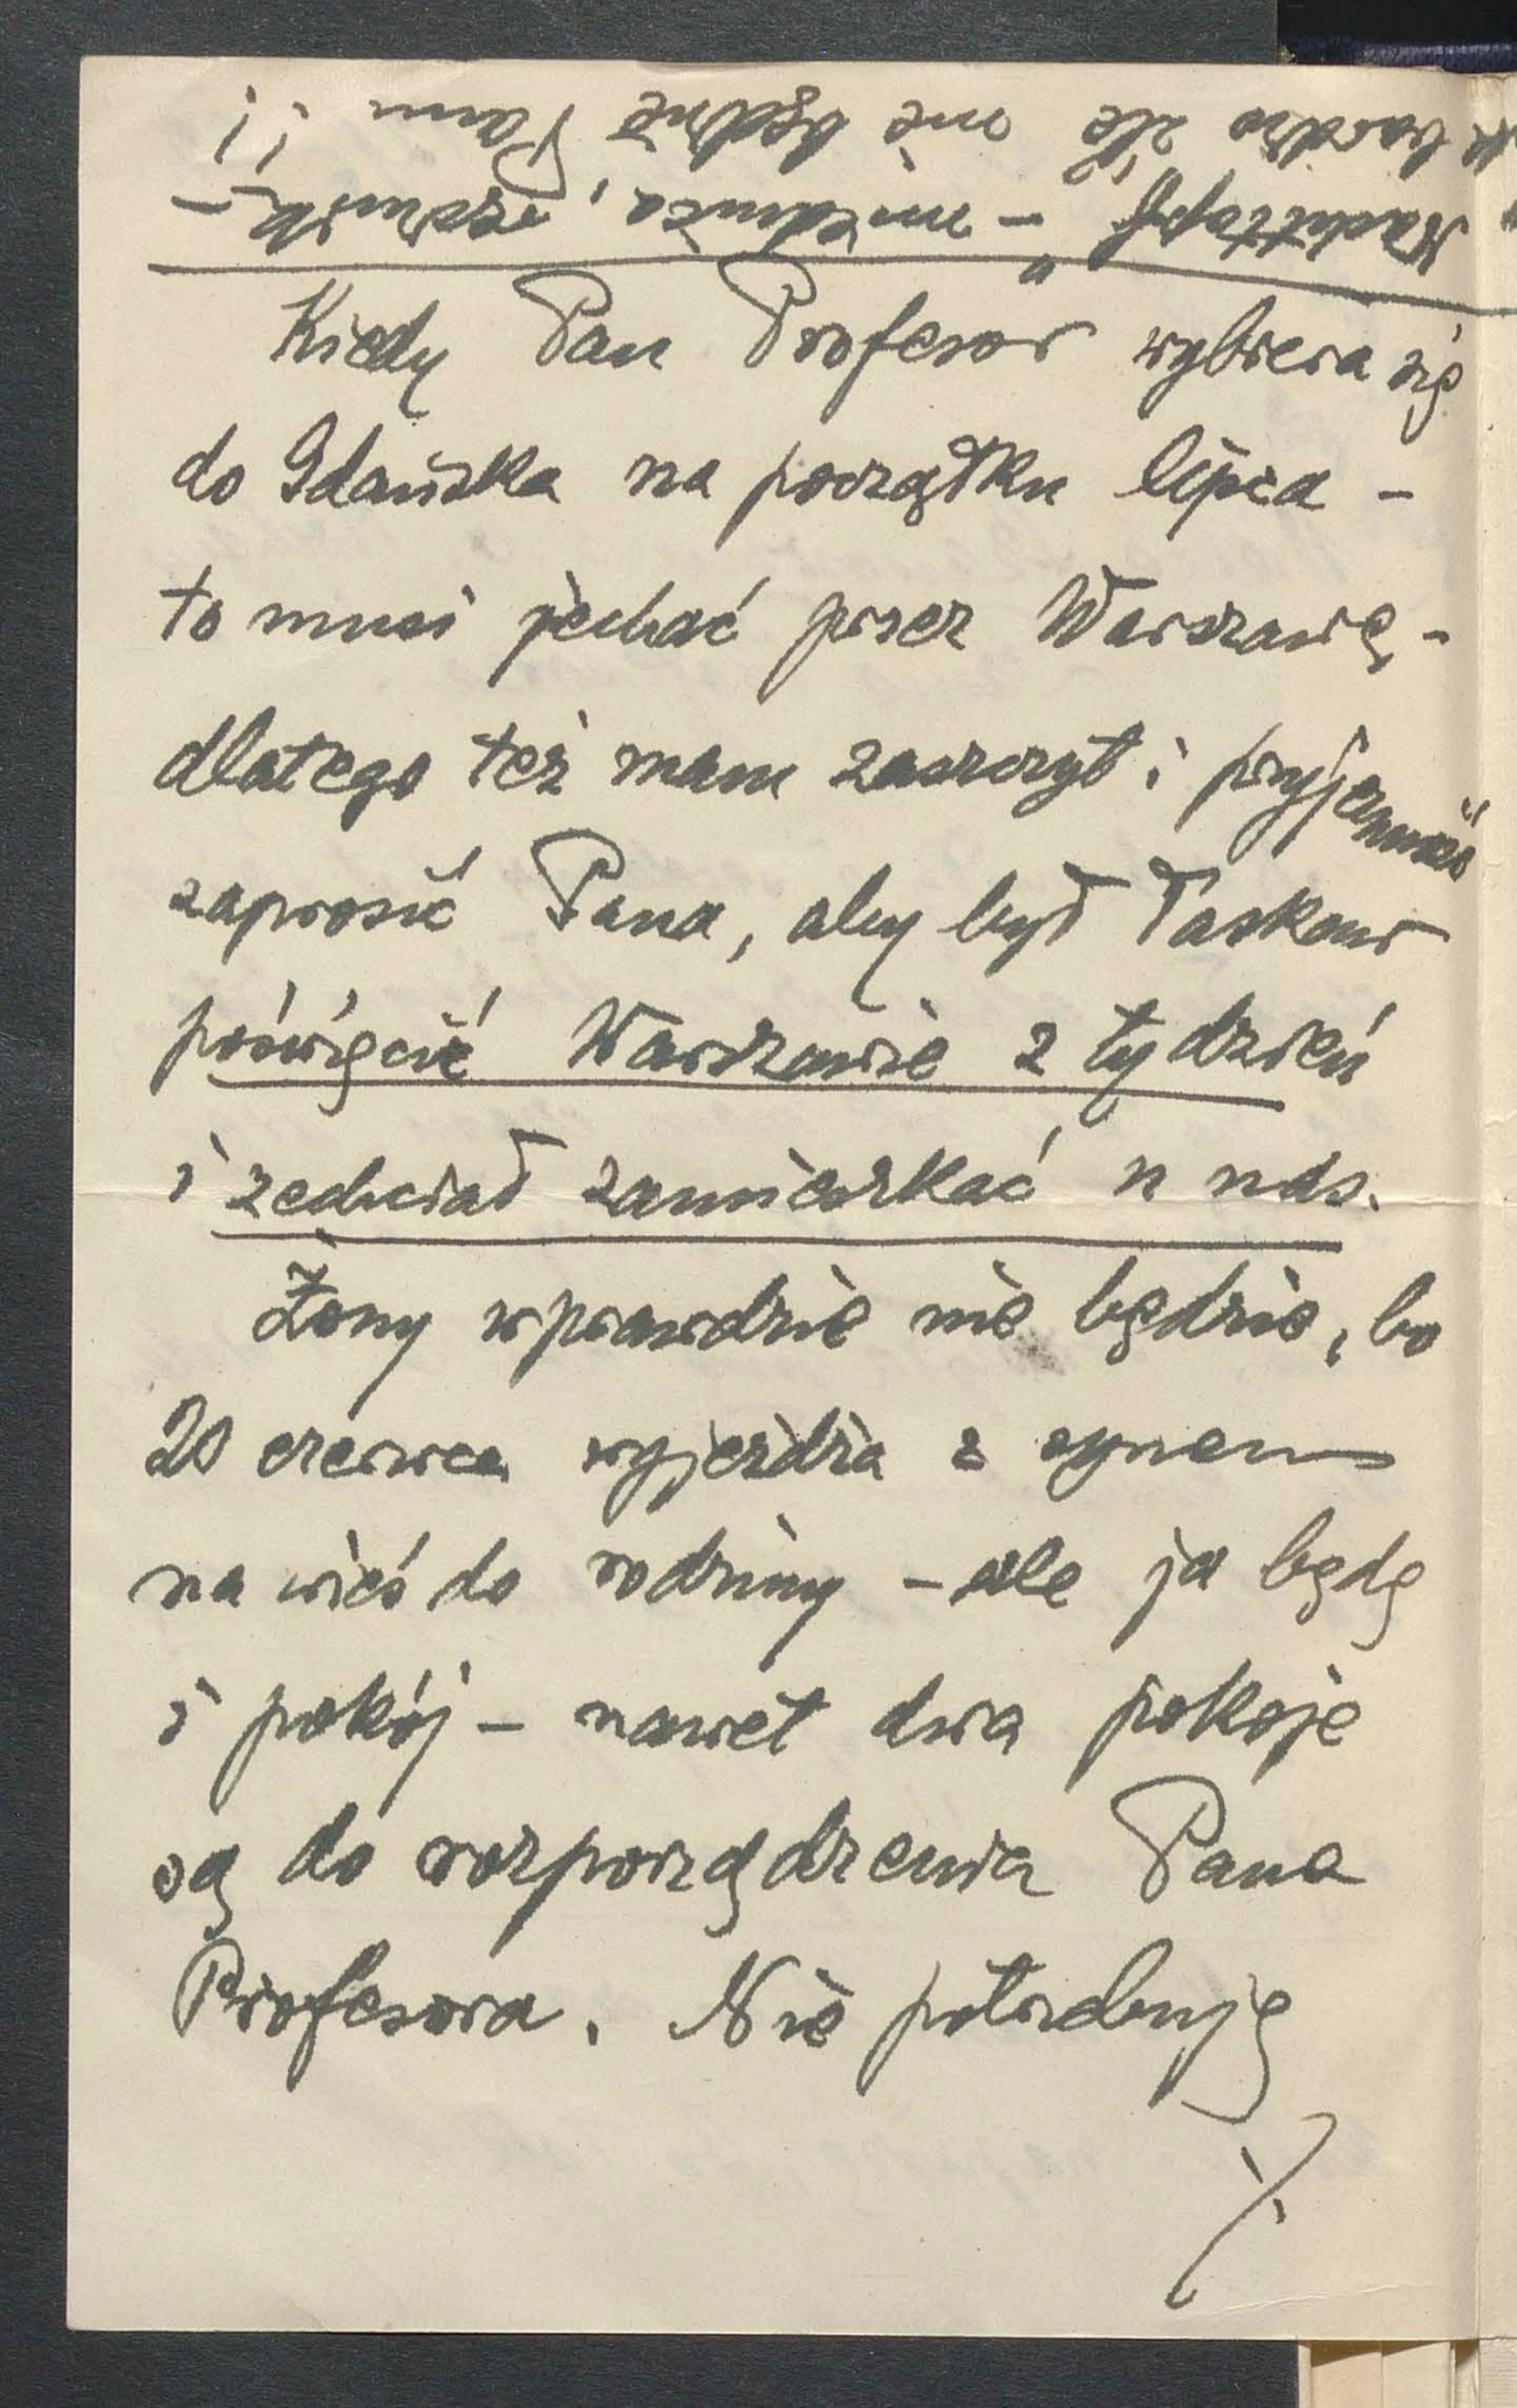 „Nachttopf" – miednica, czarnik –
bardzo źle nie będzie Panu !!
Kiedy Pan Profesor wybiera się
do Gdańska na początku lipca –
to musi jechać przez Warszawę –
dlatego też mam zaszczyt i przyjemność
zaprosić Pana, aby był łaskaw
poświęcić Warszawie z tydzień
i zechciał zamieszkać u nas.
Żony wprawdzie nie będzie, bo
20 czerwca wyjeżdża z synem
na wieś do rodziny – ale ja będę
i pokój – nawet dwa pokoje
są do rozporządzenia Pana
Profesora. Nie potrzebuję
./.